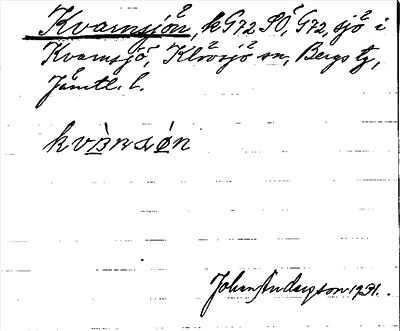 Kvarnsjön, kG72 SO, G72, sjö i
Kvarnsjö, Klövsjö sn, Bergs tg,
Jämtl. l.
kvànsǿn
Johan Anderson 1931.